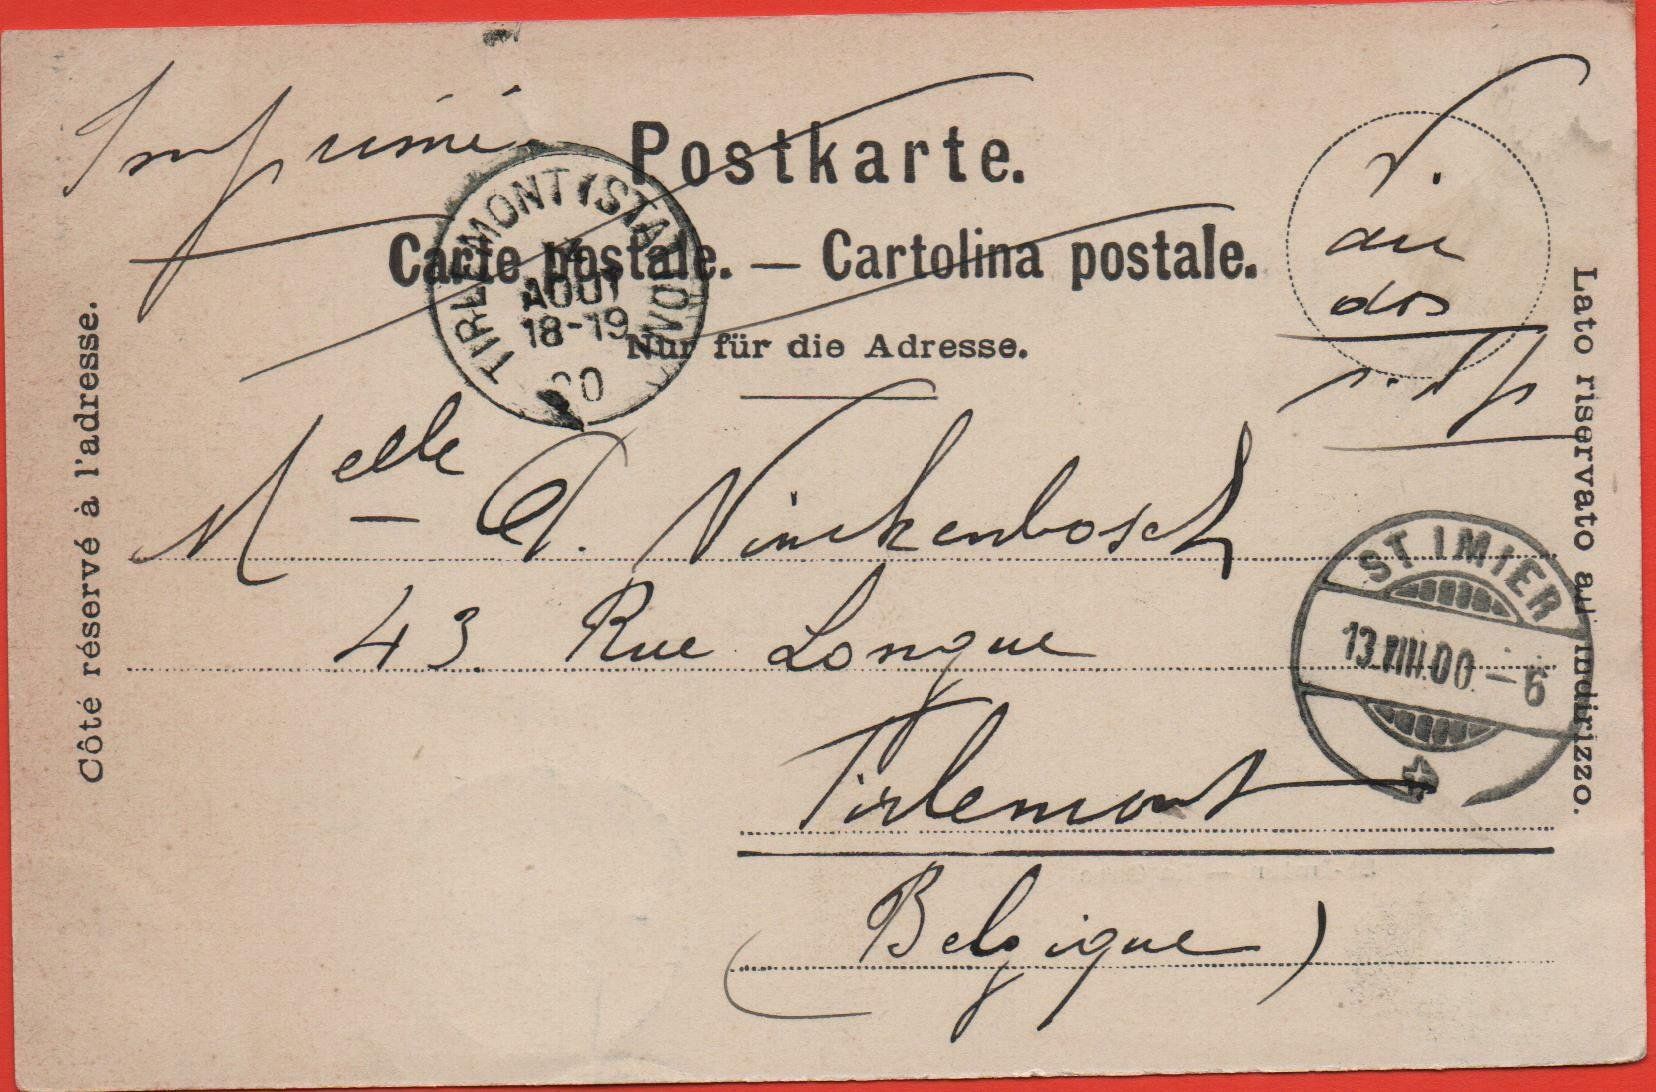 Imprimé
Postkarte.
Carte postale. — Cartolina postale.
Nur für die Adresse.
Côté réservé à l'adresse.
Lato riservato all'indirizzo.
TIRLEMONT (STATION)
AOUT
18-19
00
au
dos
Melle – Vinckenbosch
43 Rue Longue
Tirlemont
(Belgique)
ST. IMIER
13.VIII.00.–6